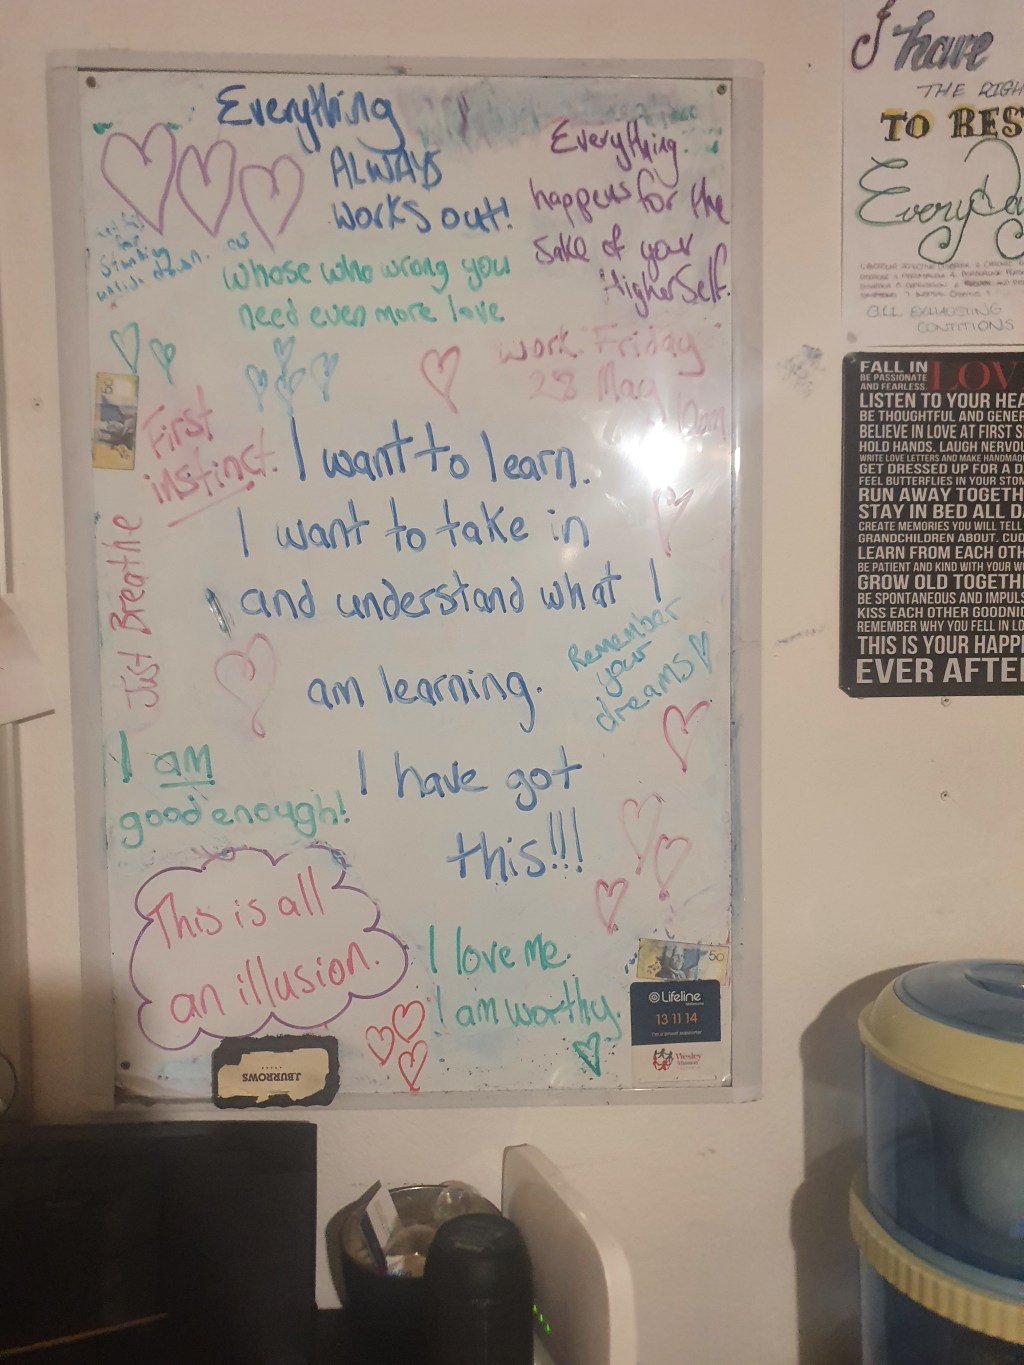 Everything
ALWAYS
WORKS out!
Everything
happens for the
sake of your
Higher Self.
Standing
whose who wrong you
need even more love
work Friday
28 May
10am
First
instinct.
I want to learn.
I want to take in
and understand what I
am learning.
Just Breathe
Remember
your
dreams
I am
good enough!
I have got
this!!!
This is all
an illusion.
I love me.
I am worthy.
50
Lifeline
13 11 14
Wesley
Mission
J.BURROWS
I have
THE RIGH
TO RES
EveryDa
CONTITIONS
FALL IN LOV
BE PASSIONATE
AND FEARLESS.
LISTEN TO YOUR HEA
BE THOUGHTFUL AND GENER
BELIEVE IN LOVE AT FIRST S
HOLD HANDS. LAUGH NERVOU
WRITE LOVE LETTERS AND MAKE HANDMAD
GET DRESSED UP FOR A D
FEEL BUTTERFLIES IN YOUR STOM
RUN AWAY TOGETH
STAY IN BED ALL DA
CREATE MEMORIES YOU WILL TELL
GRANDCHILDREN ABOUT. CUD
LEARN FROM EACH OTH
BE PATIENT AND KIND WITH YOUR W
GROW OLD TOGETH
BE SPONTANEOUS AND IMPULS
KISS EACH OTHER GOODNIG
REMEMBER WHY YOU FELL IN LO
THIS IS YOUR HAPP
EVER AFTE